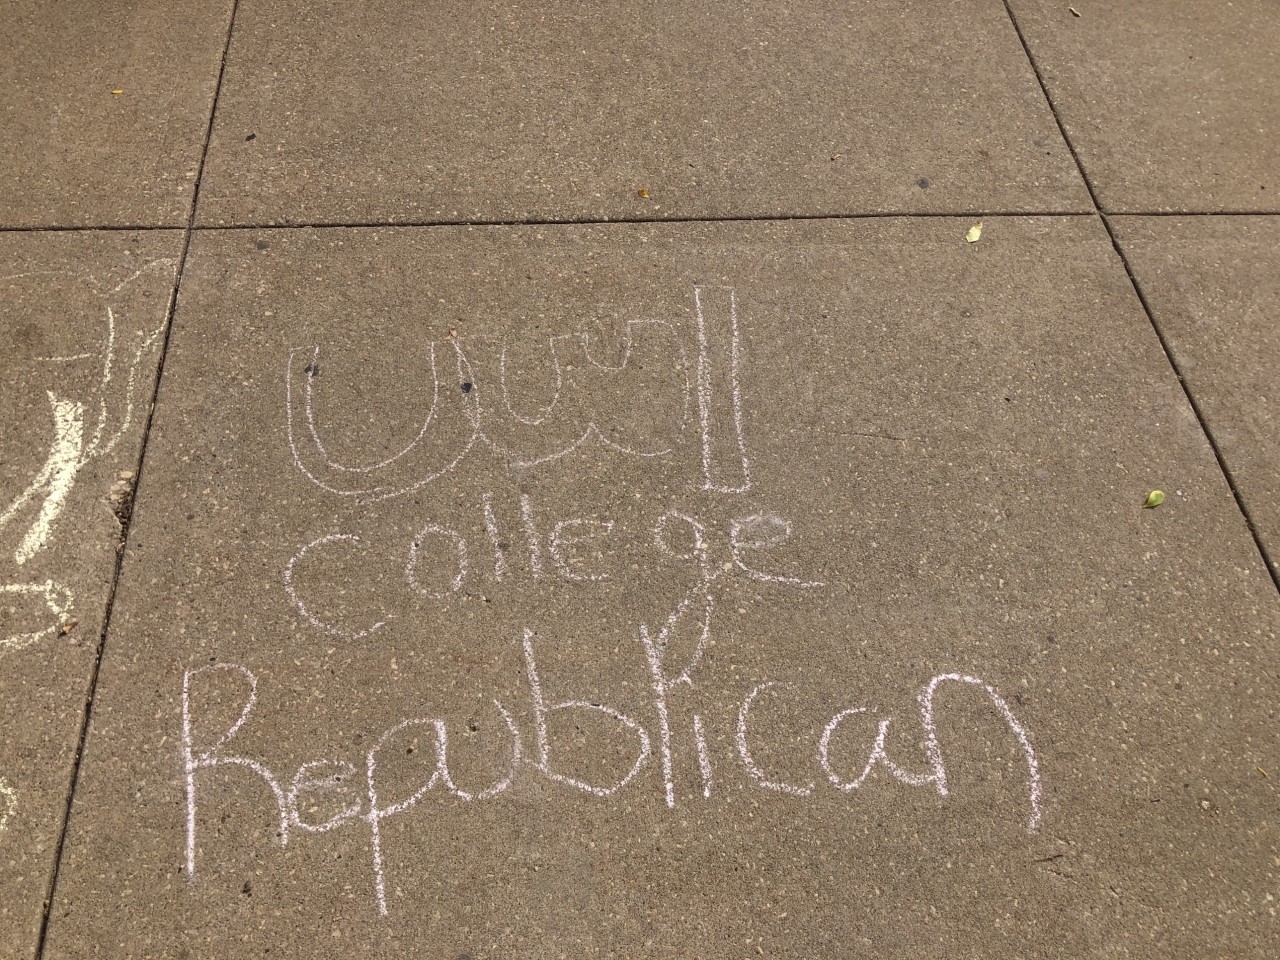 College
Republican